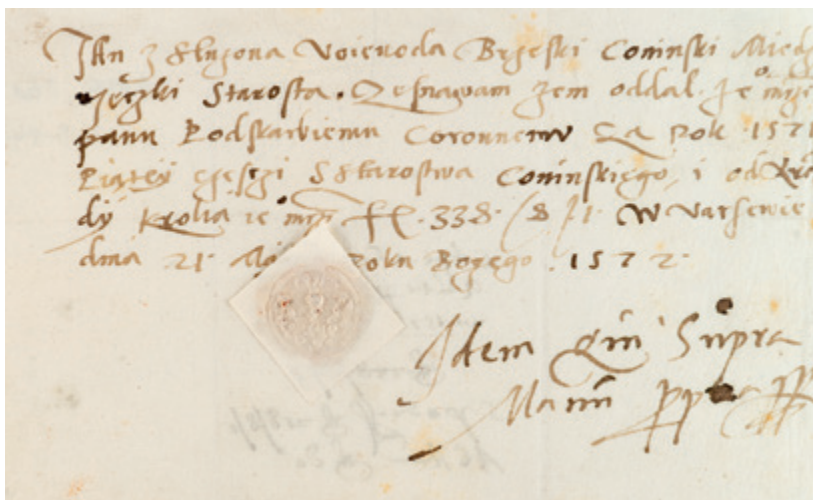 Jan z Służona Voievoda Brzeski Coninski Miedz
Starosta. Zesnawam żem oddal Je mczi
panu Podskarbiemu Coronnemu Za Rok 1571
Piątey częsczi Starostwa Coninskiego, i od
Krolia ie mczi fl. 338. W Varsewie
dnia 21. Roku Bozego. 1572.
Idem qui Supra
Manu ppria